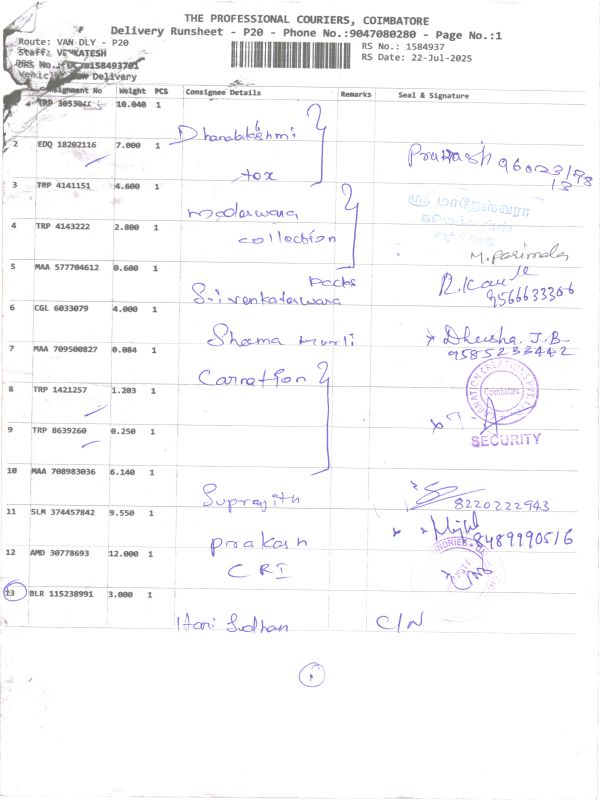 THE PROFESSIONAL COURIERS, COIMBATORE
Delivery Runsheet - P20 - Phone No.:9047080280 - Page No.:1
Route: VAN DLY - P20
RS No.: 1584937
Staff: VENKATESH
RS Date: 22-Jul-2025
Delivery
Consignment No Weight PCS Consignee Details Remarks Seal & Signature
TRP 10.040 1
Dhanalakshmi
2 EDQ 18202116 7.000 1
Prakash
tex
3 TRP 4141151 4.600 1
ஸ்ரீ மாரேஸ்வரா
collection
4 TRP 4143222 2.800 1
M. Parimala
packs
5 MAA 577704612 0.600 1
Sri venkateswara
9566633306
6 CGL 6033079 4.000 1
Shama
Dheusha. J.B
9585233442
7 MAA 709500827 0.084 1
Carnation
CARNATION CREATIONS PVT. LTD
Coimbatore
SECURITY
8 TRP 1421257 1.203 1
9 TRP 8639260 0.250 1
10 MAA 708983036 6.140 1
Suprajith
8220222943
11 SLM 374457842 9.550 1
prakash
8489990516
12 AMD 30778693 12.000 1
CRI
13 BLR 115238991 3.000 1
Hari Sudhan C/N